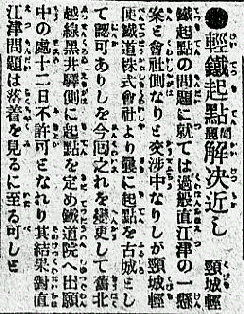 ●輕鐵起點問題解決近し 頸城輕
鐵起點の問題に就ては過般直江津の一懸
案と會社側なりと交渉中なりしが頸城輕
便鐵道株式會社より曩に起點を古城とし
て認可ありしを今回之れを變更して舊北
越線黑井驛側に起點を定め鐵道院へ出願
中の處十二日不許可となれり其結果對直
江津問題は落着を見るに至る可しと